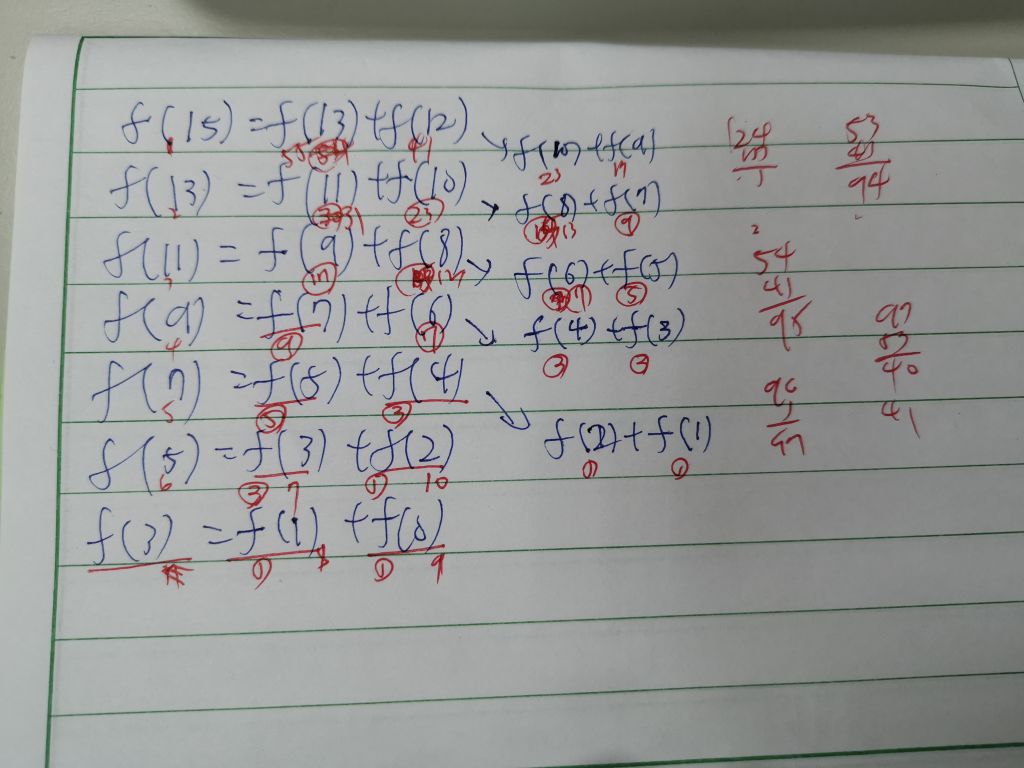 f(15) = f(13) + f(12) ↘ f(10) + f(9)
1 55 41 23 17
f(13) = f(11) + f(10) ↘ f(8) + f(7)
2 31 23 13 9
f(11) = f(9) + f(8) ↘ f(6) + f(5)
3 17 7 5
f(9) = f(7) + f(6) ↘ f(4) + f(3)
4 9 7 3
f(7) = f(5) + f(4) ↘ f(2) + f(1)
5 5 3 1 1
f(5) = f(3) + f(2)
6 3 7 1 10
f(3) = f(1) + f(0)
1 8 1 9
124
53
41
94
2
54
41
95
97
40
41
97